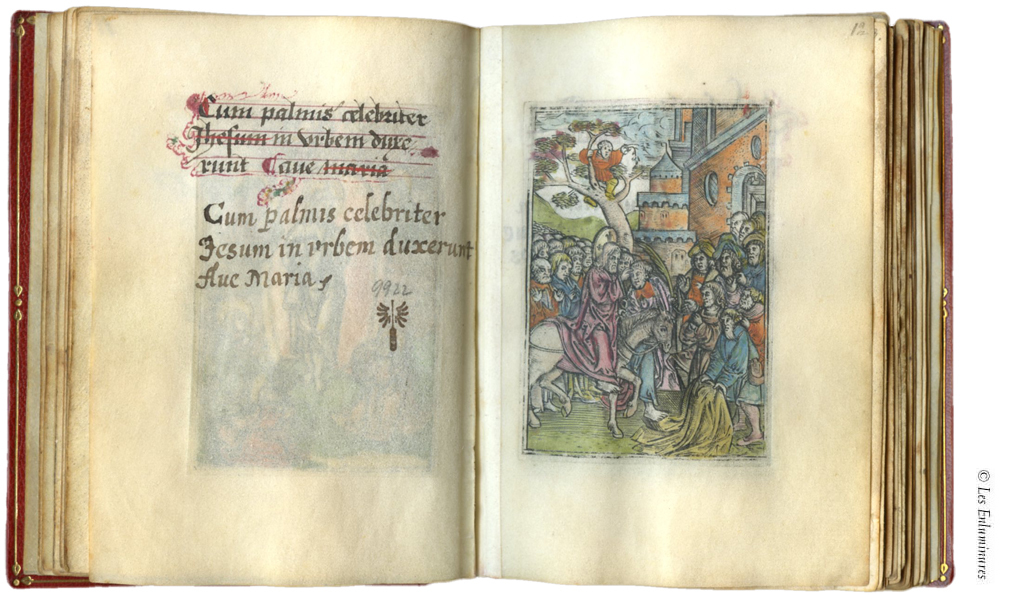 Cum palmis celebriter
Jhesum in vrbem duxe
runt Aue maria
Cum palmis celebriter
Jesum in vrbem duxerunt
Aue Maria
9922
© Les Enluminures